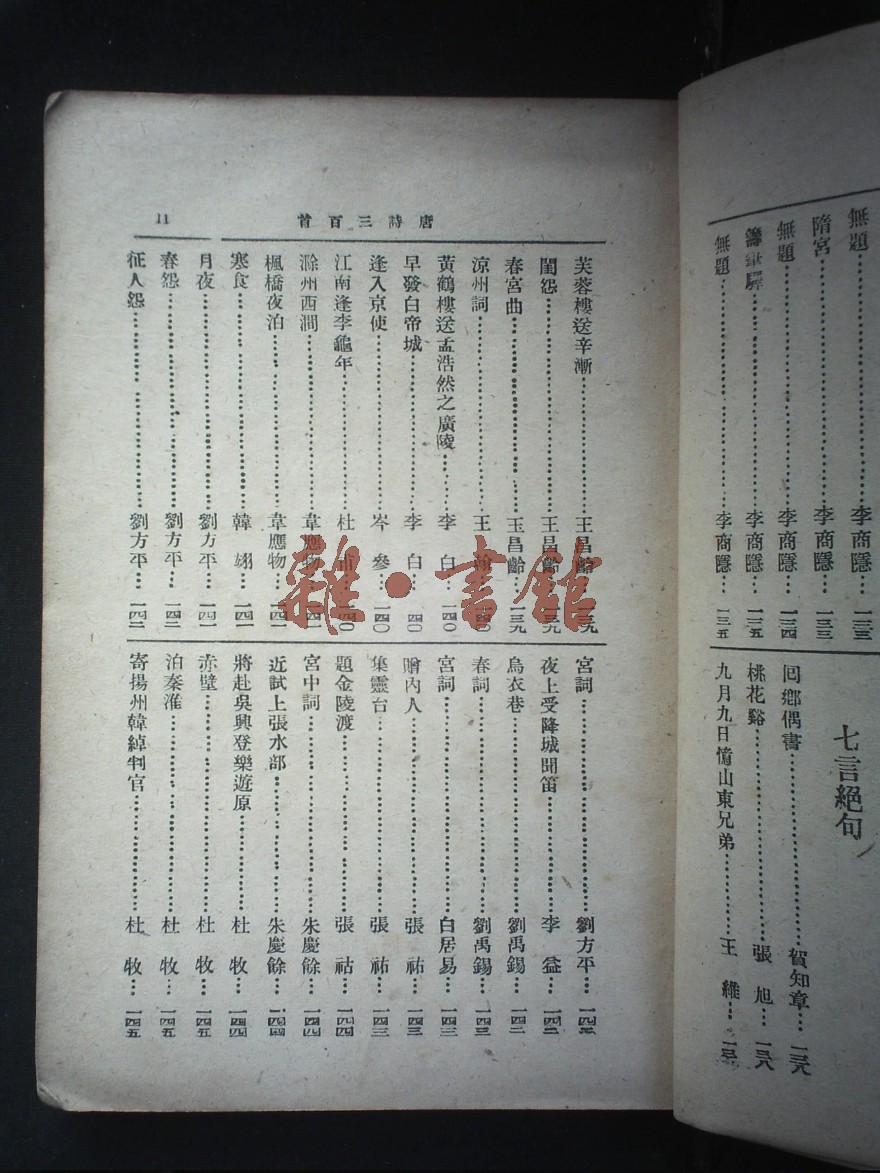 無題……李商隱…一三三
隋宮……李商隱…一三三
無題……李商隱…一三四
籌筆驛……李商隱…一三五
無題……李商隱…一三五
七言絕句
回鄉偶書……賀知章…一三八
桃花谿……張旭…一三八
九月九日憶山東兄弟……王維…
唐詩三百首
11
芙蓉樓送辛漸……王昌齡…一三九
閨怨……王昌齡…一三九
春宮曲……王昌齡…一三九
涼州詞……王翰…一四〇
黃鶴樓送孟浩然之廣陵……李白…一四〇
早發白帝城……李白…一四〇
逢入京使……岑參…一四〇
江南逢李龜年……杜甫…一四〇
滁州西澗……韋應物…一四一
楓橋夜泊……韋應物…一四一
寒食……韓翃…一四一
月夜……劉方平…一四一
春怨……劉方平…一四二
征人怨……劉方平…一四二
宮詞……劉方平…一四二
夜上受降城聞笛……李益…一四二
烏衣巷……劉禹錫…一四二
春詞……劉禹錫…一四三
宮詞……白居易…一四三
贈內人……張祜…一四三
集靈台……張祜…一四三
題金陵渡……張祜…一四四
宮中詞……朱慶餘…一四四
近試上張水部……朱慶餘…一四四
將赴吳興登樂遊原……杜牧…一四四
赤壁……杜牧…一四五
泊秦淮……杜牧…一四五
寄揚州韓綽判官……杜牧…一四五
雜·書館